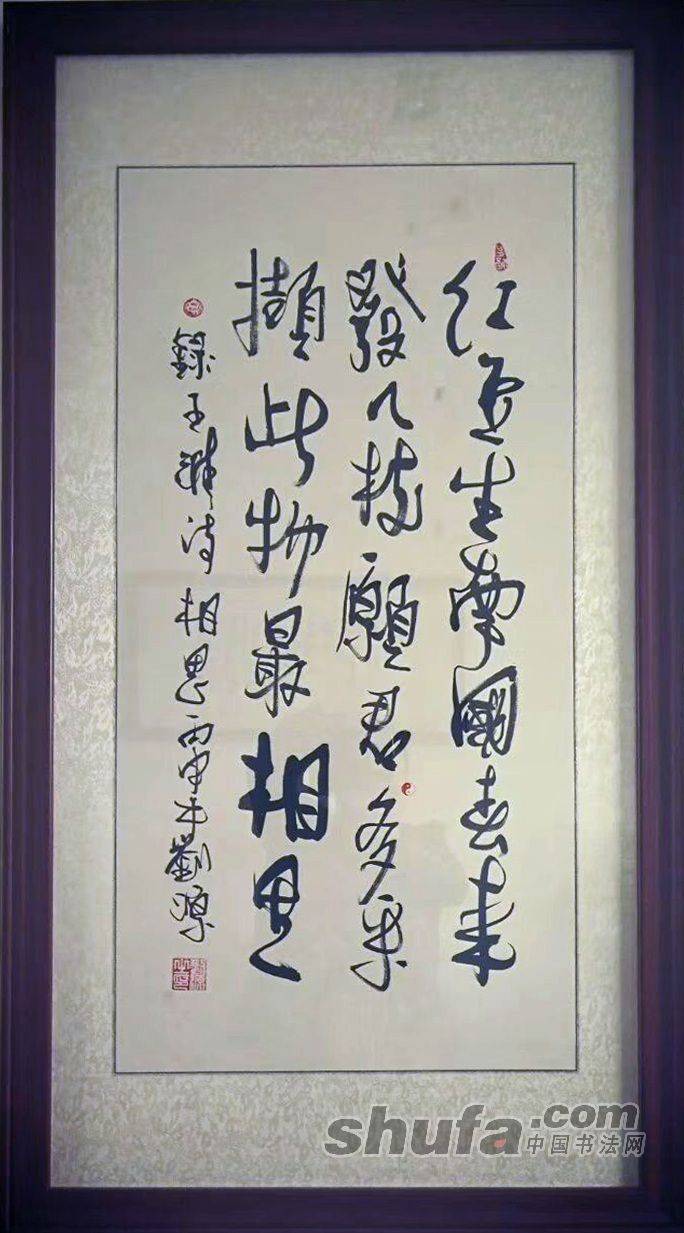 红豆生南國春来
發几枝願君多采
擷此物最相思
錄王維诗相思丙申劉源
shufa.com
中国书法网